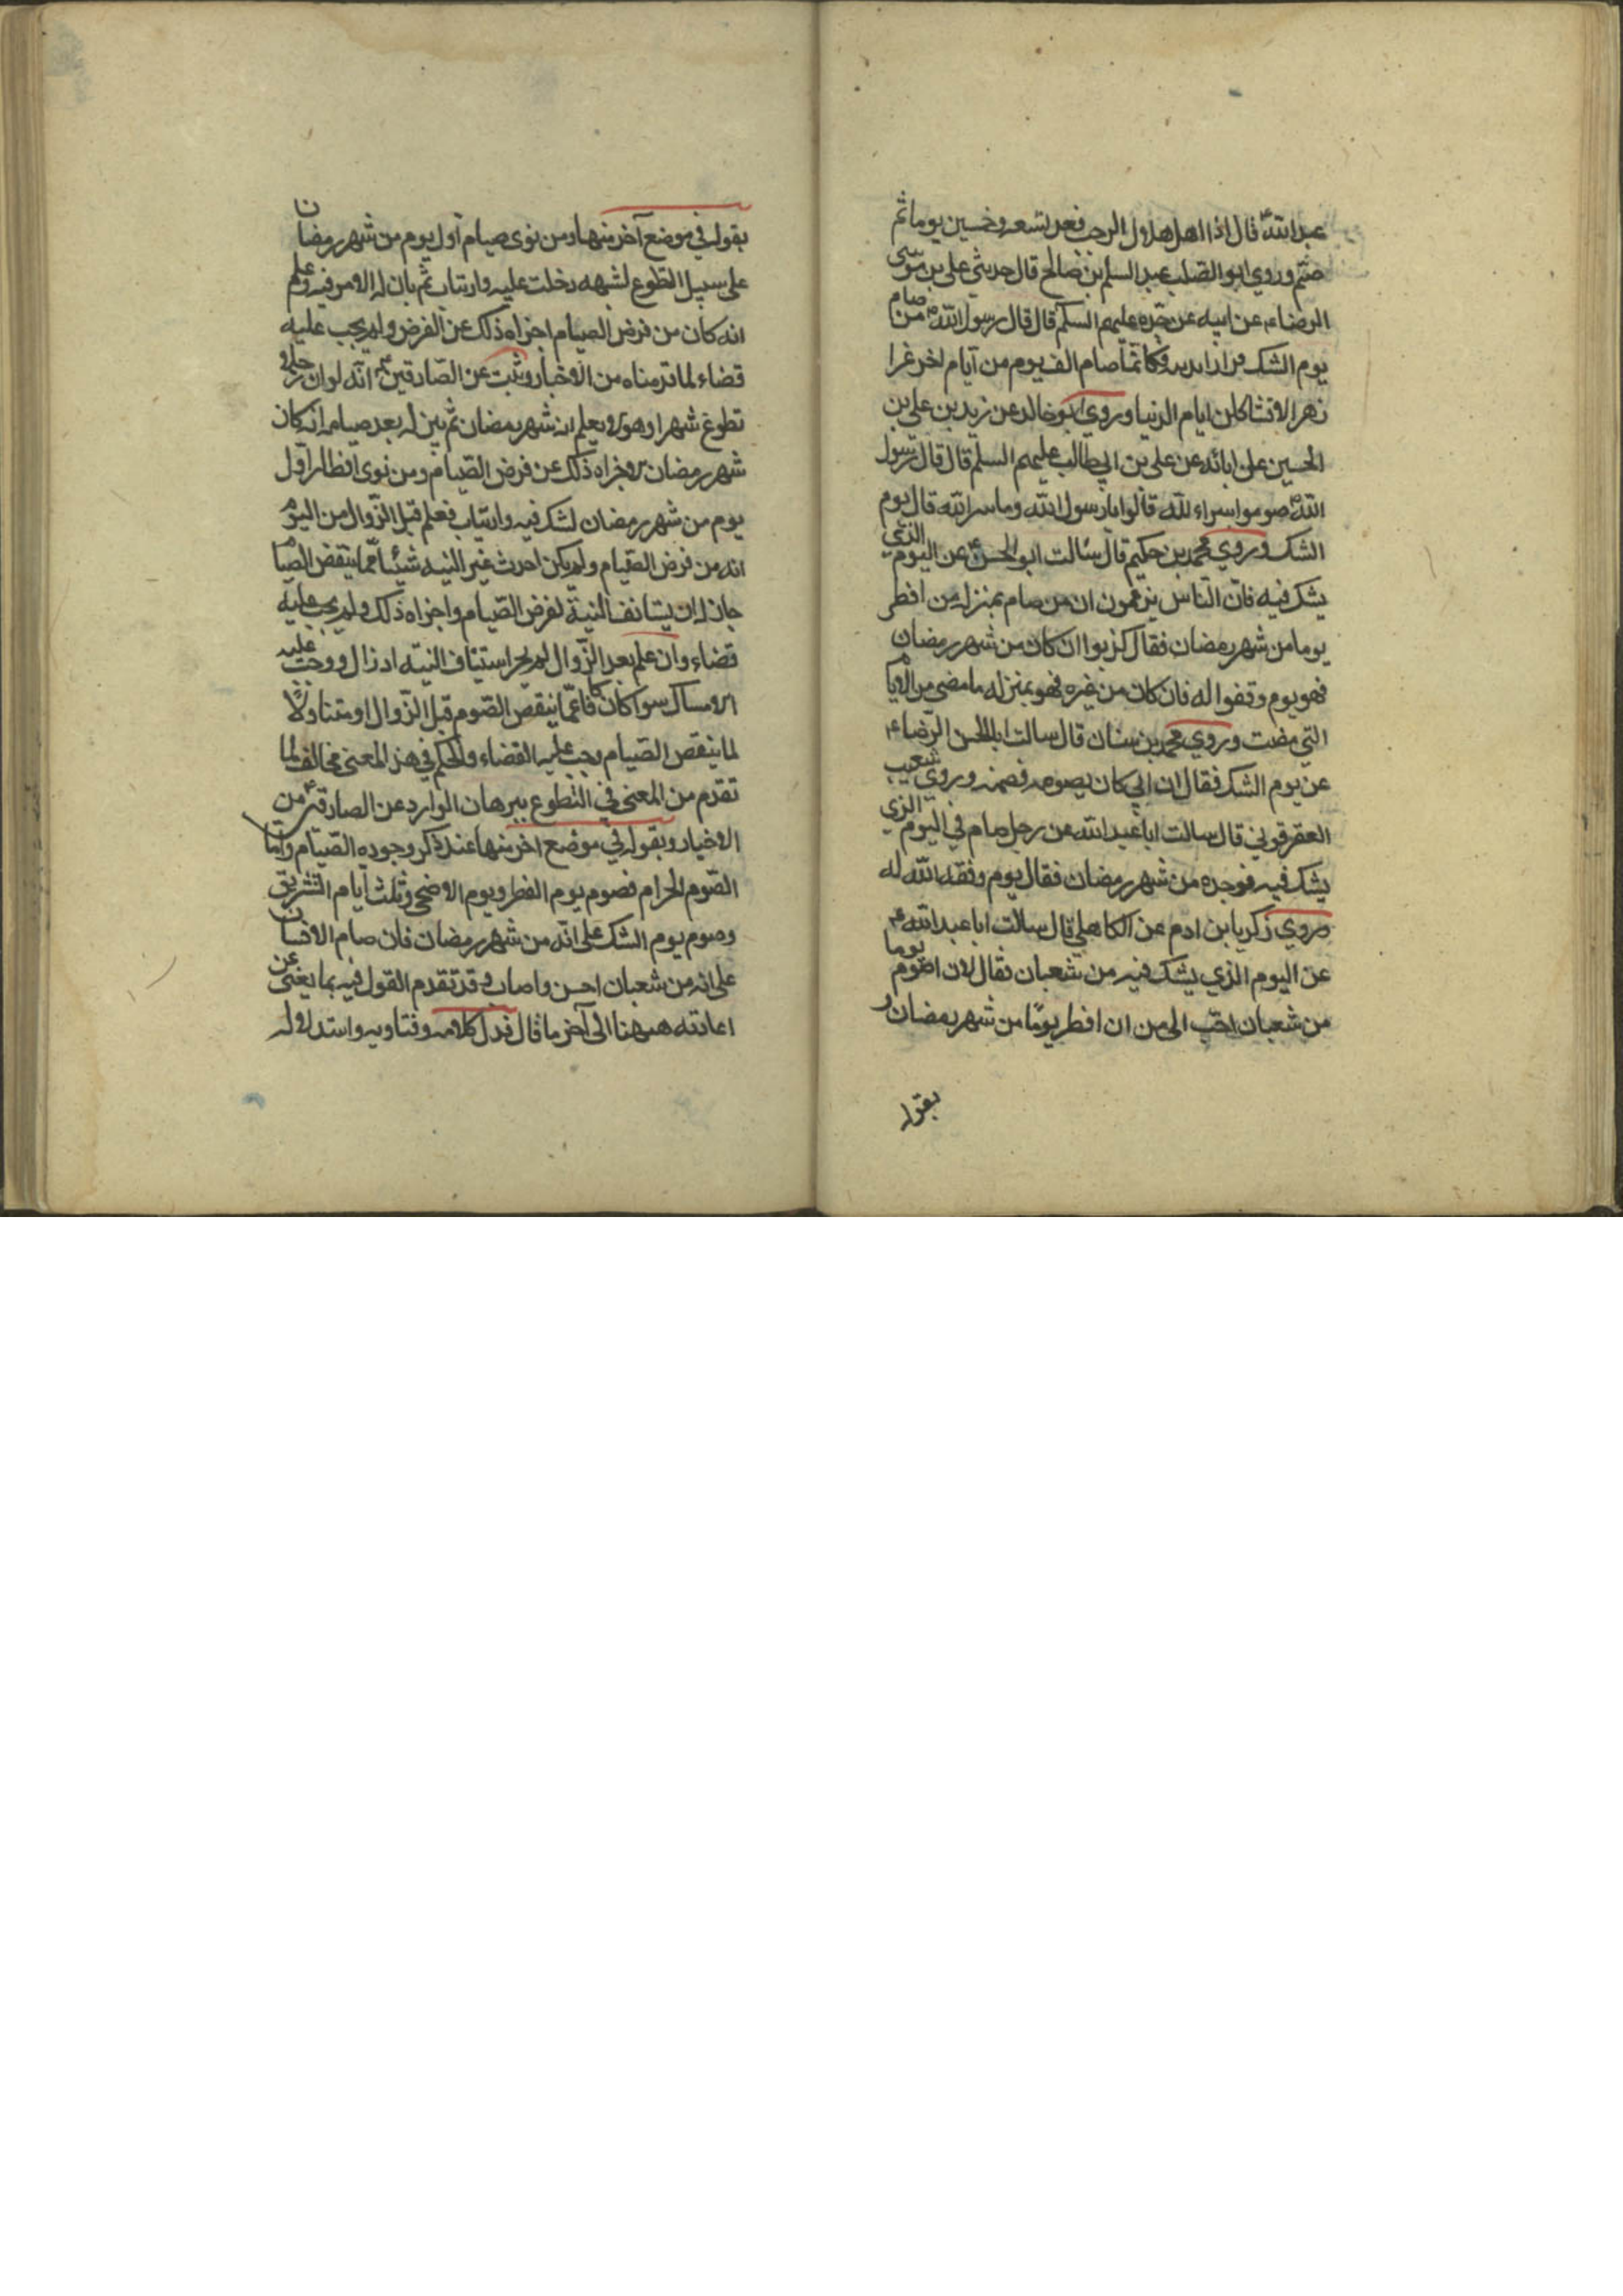 عبدالله ع قال اذا اهل هلال الرجب فعد تسعه وخمسين يوما ثم
صم وروي ابو الصلت عبد السلم بن صالح قال حدثني علي بن موسى
الرضاء عن ابيه عن جده عليهم السلم قال قال رسول الله ص من صام
يوم الشك فرارا بدينه فكانما صام الف يوم من آيام اخر غرا
زهرا لا تشاكلن ايام الدنيا وروي ابو خالد عن زيد بن علي بن
الحسين على ابائه عن علي بن ابي طالب عليهم السلم قال قال رسول
الله ص صوموا سراء لله قالوا يا رسول الله وما سر الله قال يوم
الشك وروي محمد بن حكيم قال سالت ابو الحسن ع عن اليوم الذي
يشك فيه فان الناس يزعمون ان من صام بمنزله من افطر
يوما من شهر رمضان فقال كذبوا ان كان من شهر رمضان
فهو يوم وقفوا له فان كان من غيره فهو بمنزله ما مضى من الايام
التي مضت وروي محمد بن سنان قال سالت ابا الحسن الرضاء
عن يوم الشك فقال ان ابي كان يصومه فصمه وروي شعيب
العقرقوفي قال سالت ابا عبد الله عن رجل صام في اليوم الذي
يشك فيه فوجده من شهر رمضان فقال يوم وفقه الله له
وروي زكريا بن ادم عن الكاهلي قال سالت ابا عبد الله ع
عن اليوم الذي يشك فيه من شعبان فقال لان اصوم يوما
من شعبان احب الي من ان افطر يوما من شهر رمضان و
بقوله
بقوله في موضع آخر منها ومن نوى صيام آول يوم من شهر رمضان
على سبيل التطوع لشبهه دخلت عليه وارتياب ثم بان له الامر فيه وعلم
انه كان من فرض الصيام اجزاه ذلك عن الفرض ولم يجب عليه
قضاء لما قدمناه من الاخبار وثبت عن الصادقين ع انه لو ان رجلا
تطوع شهرا وهو لا يعلم انه شهر رمضان ثم تبين له بعد صيامه انه كان
شهر رمضان لاجزاه ذلك عن فرض الصيام ومن نوى افطار اول
يوم من شهر رمضان لشك فيه وارتياب فعلم قبل الزوال من اليوم
انه من فرض الصيام ولم يكن احدث غير النيه شيئا مما ينقض الصيام
جاز له ان يستانف النية لفرض الصيام واجزاه ذلك ولم يجب عليه
قضاء وان علم بعد الزوال لم يجز استيناف النيه اذ ذال ووجب عليه
الامساك سوا كان كافا عما ينقص الصوم قبل الزوال او متناولا
لما ينقص الصيام وجب عليه القضاء والحكم في هذ المعنى مخالف لما
تقدم من المعنى في التطوع ببرهان الوارد عن الصادقين ع من
الاخبار وبقوله في موضع اخر منها عند ذكر وجوده الصيام واما
الصوم الحرام فصوم يوم الفطر ويوم الاضحى وثلث آيام التشريق
وصوم يوم الشك على انه من شهر رمضان فان صام الانسان
على انه من شعبان احسن واصاب وقد تقدم القول فيه بما يغني عن
اعادته ههنا الى آخر ما قال فدل كلامه وفتاويه واستدلاله